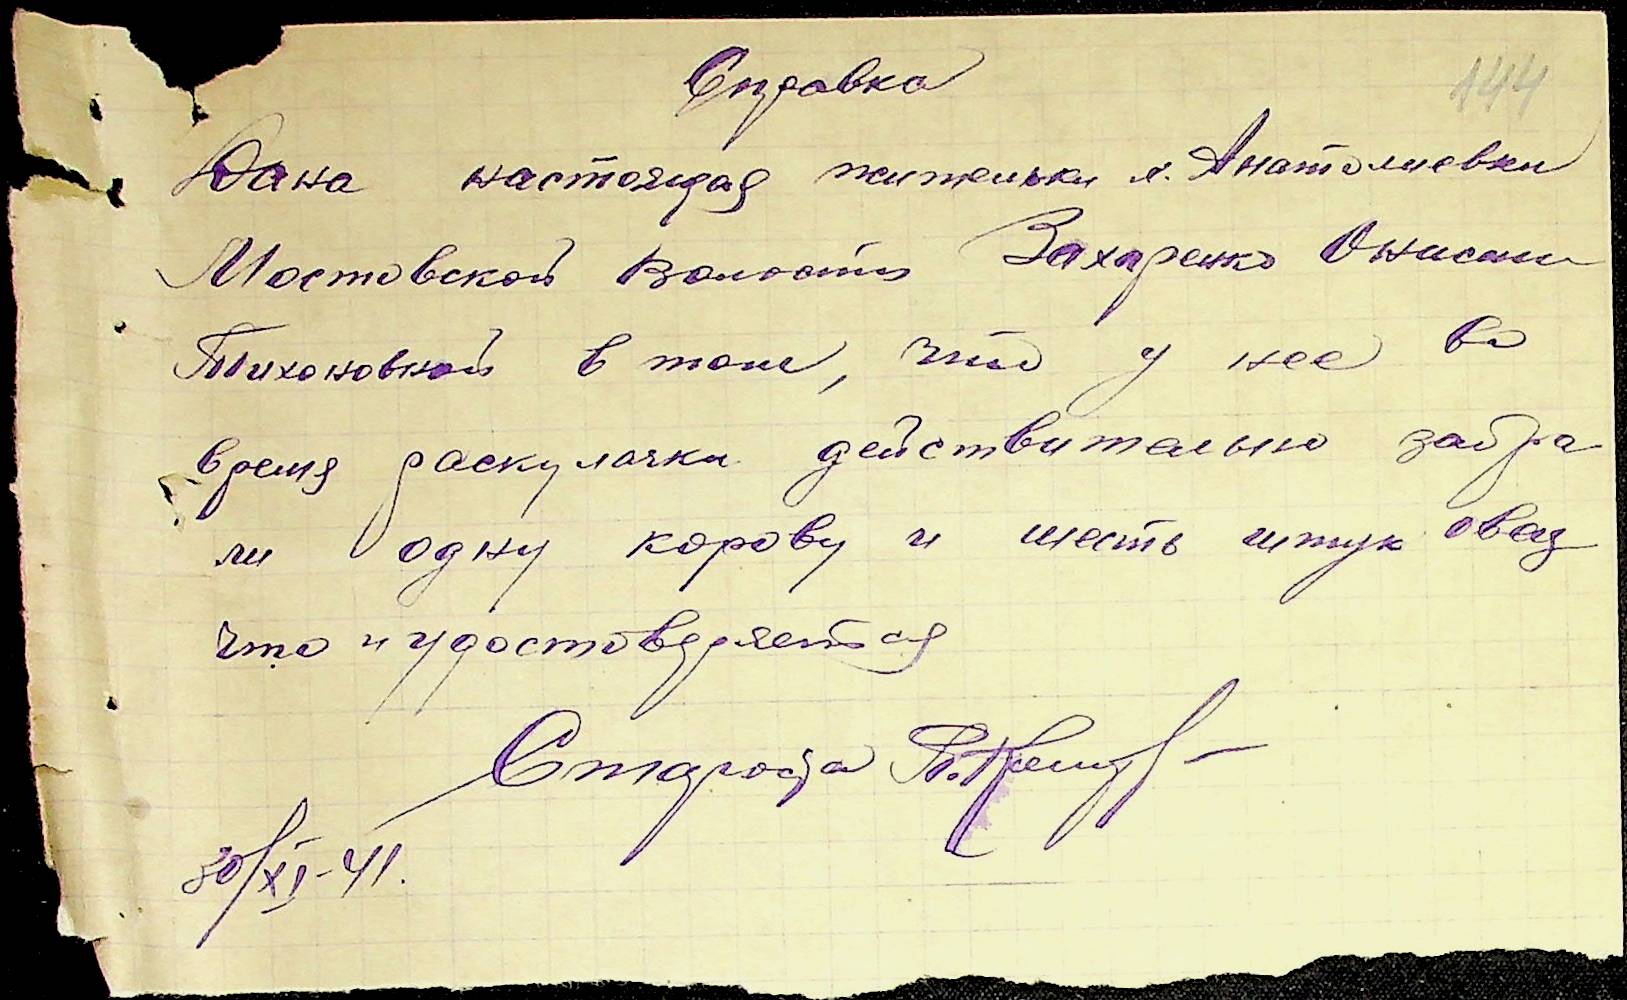 144
Справка
Дана настоящая жительки с. Анатолиевки
Мостовской Волости Захаренко Онисии
Тихоновной в том, что у нее во
время раскулачки действительно забра
ли одну корову и шесть штук овец
что и удостоверяется
Староста П.
30/XI-41.